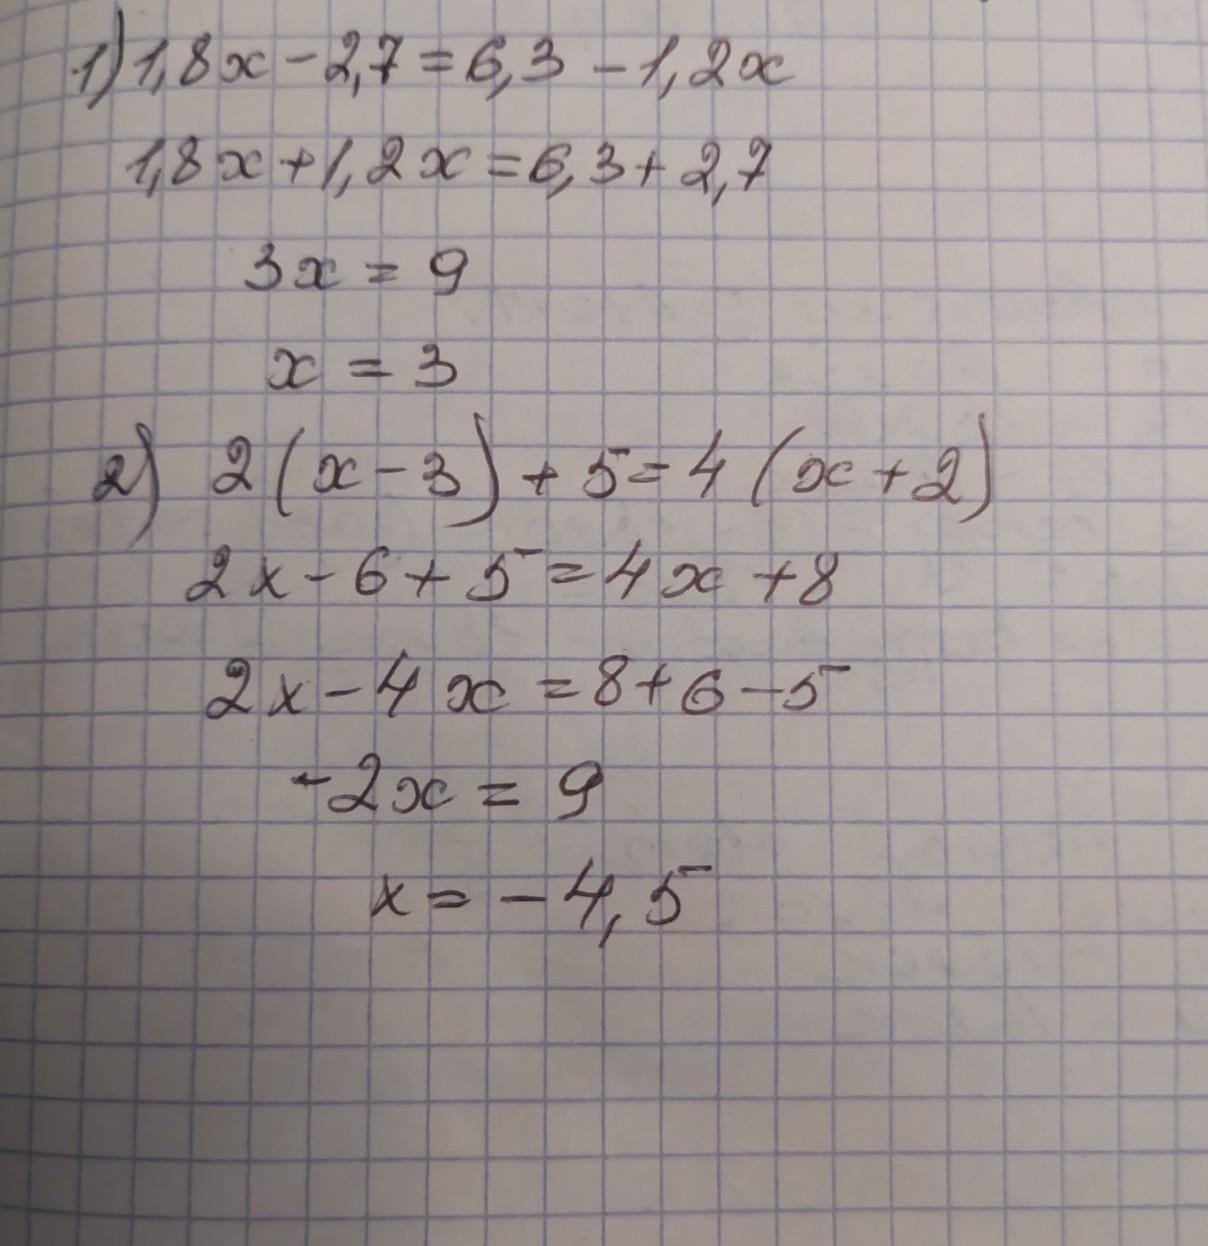 1) 1,8x - 2,7 = 6,3 - 1,2x
1,8x + 1,2x = 6,3 + 2,7
3x = 9
x = 3
2) 2(x - 3) + 5 = 4(x + 2)
2x - 6 + 5 = 4x + 8
2x - 4x = 8 + 6 - 5
-2x = 9
x = -4,5